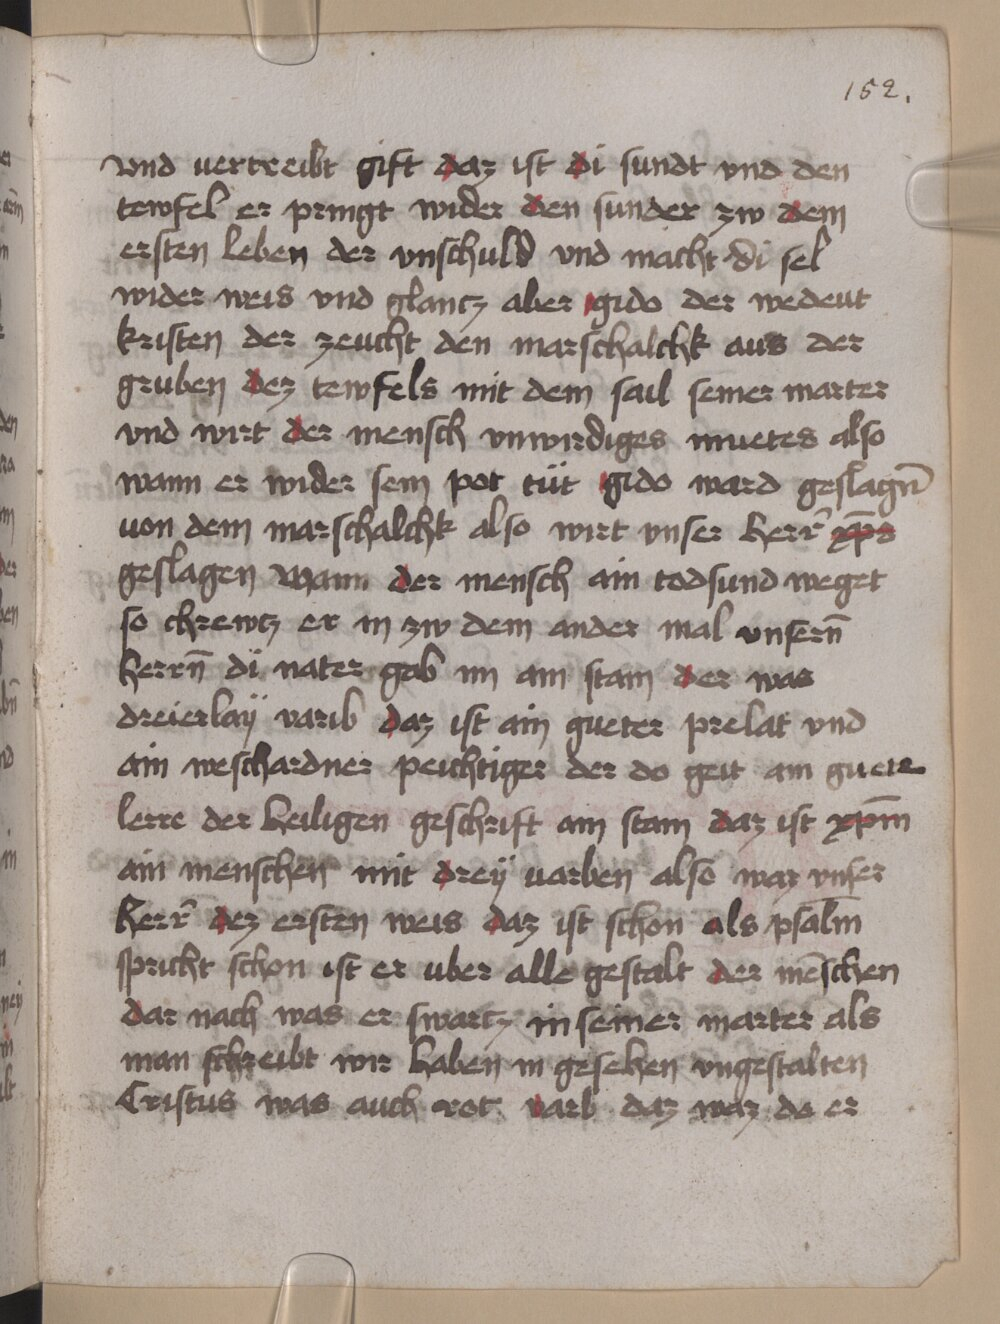 152.
vnd uertreibt gift daz ist di sundt vnd den
tewfel er pringt wider den sunder zw dem
ersten leben der vnschuld vnd macht di sel
wider weis vnd glantz aber gido der wedeut
kristen der zeucht den marschalchk aus der
gruben dez tewfels mit dem sail seiner marter
vnd wirt der mensch vnwirdiges muetes also
wann er wider sein pot tüt gido ward geslagn̄
uon dem marschalchk also wirt vnser herr̄ xp̄s
geslagen wann der mensch ain todsund weget
so chrewtz er in zw dem ander mal vnsern̄
herrn̄ di nater gab im ain stain der was
dreierlaÿ varib daz ist ain gueter prelat vnd
ain weschardner peichtiger der do geit ain guete
lerre der heiligen geschrift ain stain daz ist xp̄m
ain menschen mit dreÿ uarben also waz vnser
herr̄ dez ersten weis daz ist schon als psalm̄
spricht schon ist er uber alle gestalt der mēschen
dar nach was er swartz in seiner marter als
man schreibt wir haben in gesehen vngestalten
Cristus was auch rot varb daz waz do er